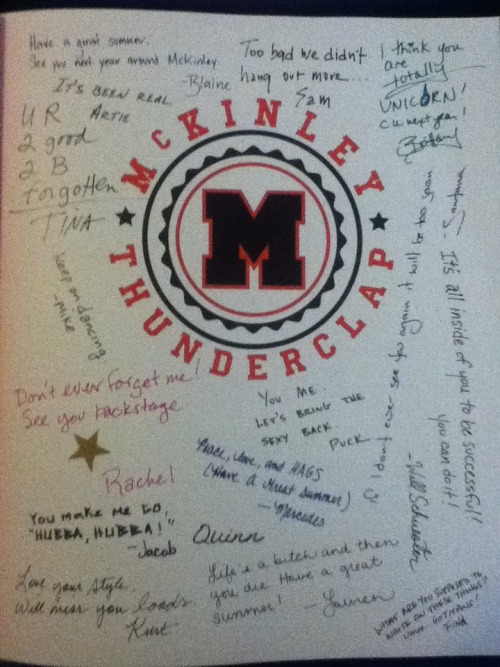 Have a great summer.
See you next year around Mckinley.
-Blaine
Too bad we didn't
hang out more...
Sam
I think you
are
totally
UNICORN!
c u next year!
Brittany
IT'S BEEN REAL
ARTIE
U R
2 good
2 B
forgotten
TINA
McKINLEY
M
THUNDERCLAP
Keep on dancing
-Mike
Don't ever forget me!
See you backstage.
Rachel
YOU ME.
LET'S BRING THE
SEXY BACK.
PUCK
ever see you again it will be too soon
Santana
It's all inside of you to be successful!
You can do it!
-Will Schuester
Peace, love, and HAGS
(Have a Great Summer)
-Mercedes
YOU MAKE ME GO,
"HUBBA, HUBBA!"
-Jacob
Quinn
Love your style,
Will miss you loads
Kurt
Life's a bitch and then
you die Have a great
summer!
-Lauren
WHAT ARE YOU SUPPOSED TO
WRITE ON THESE THINGS?
UMM. GO TITANS!
FINN